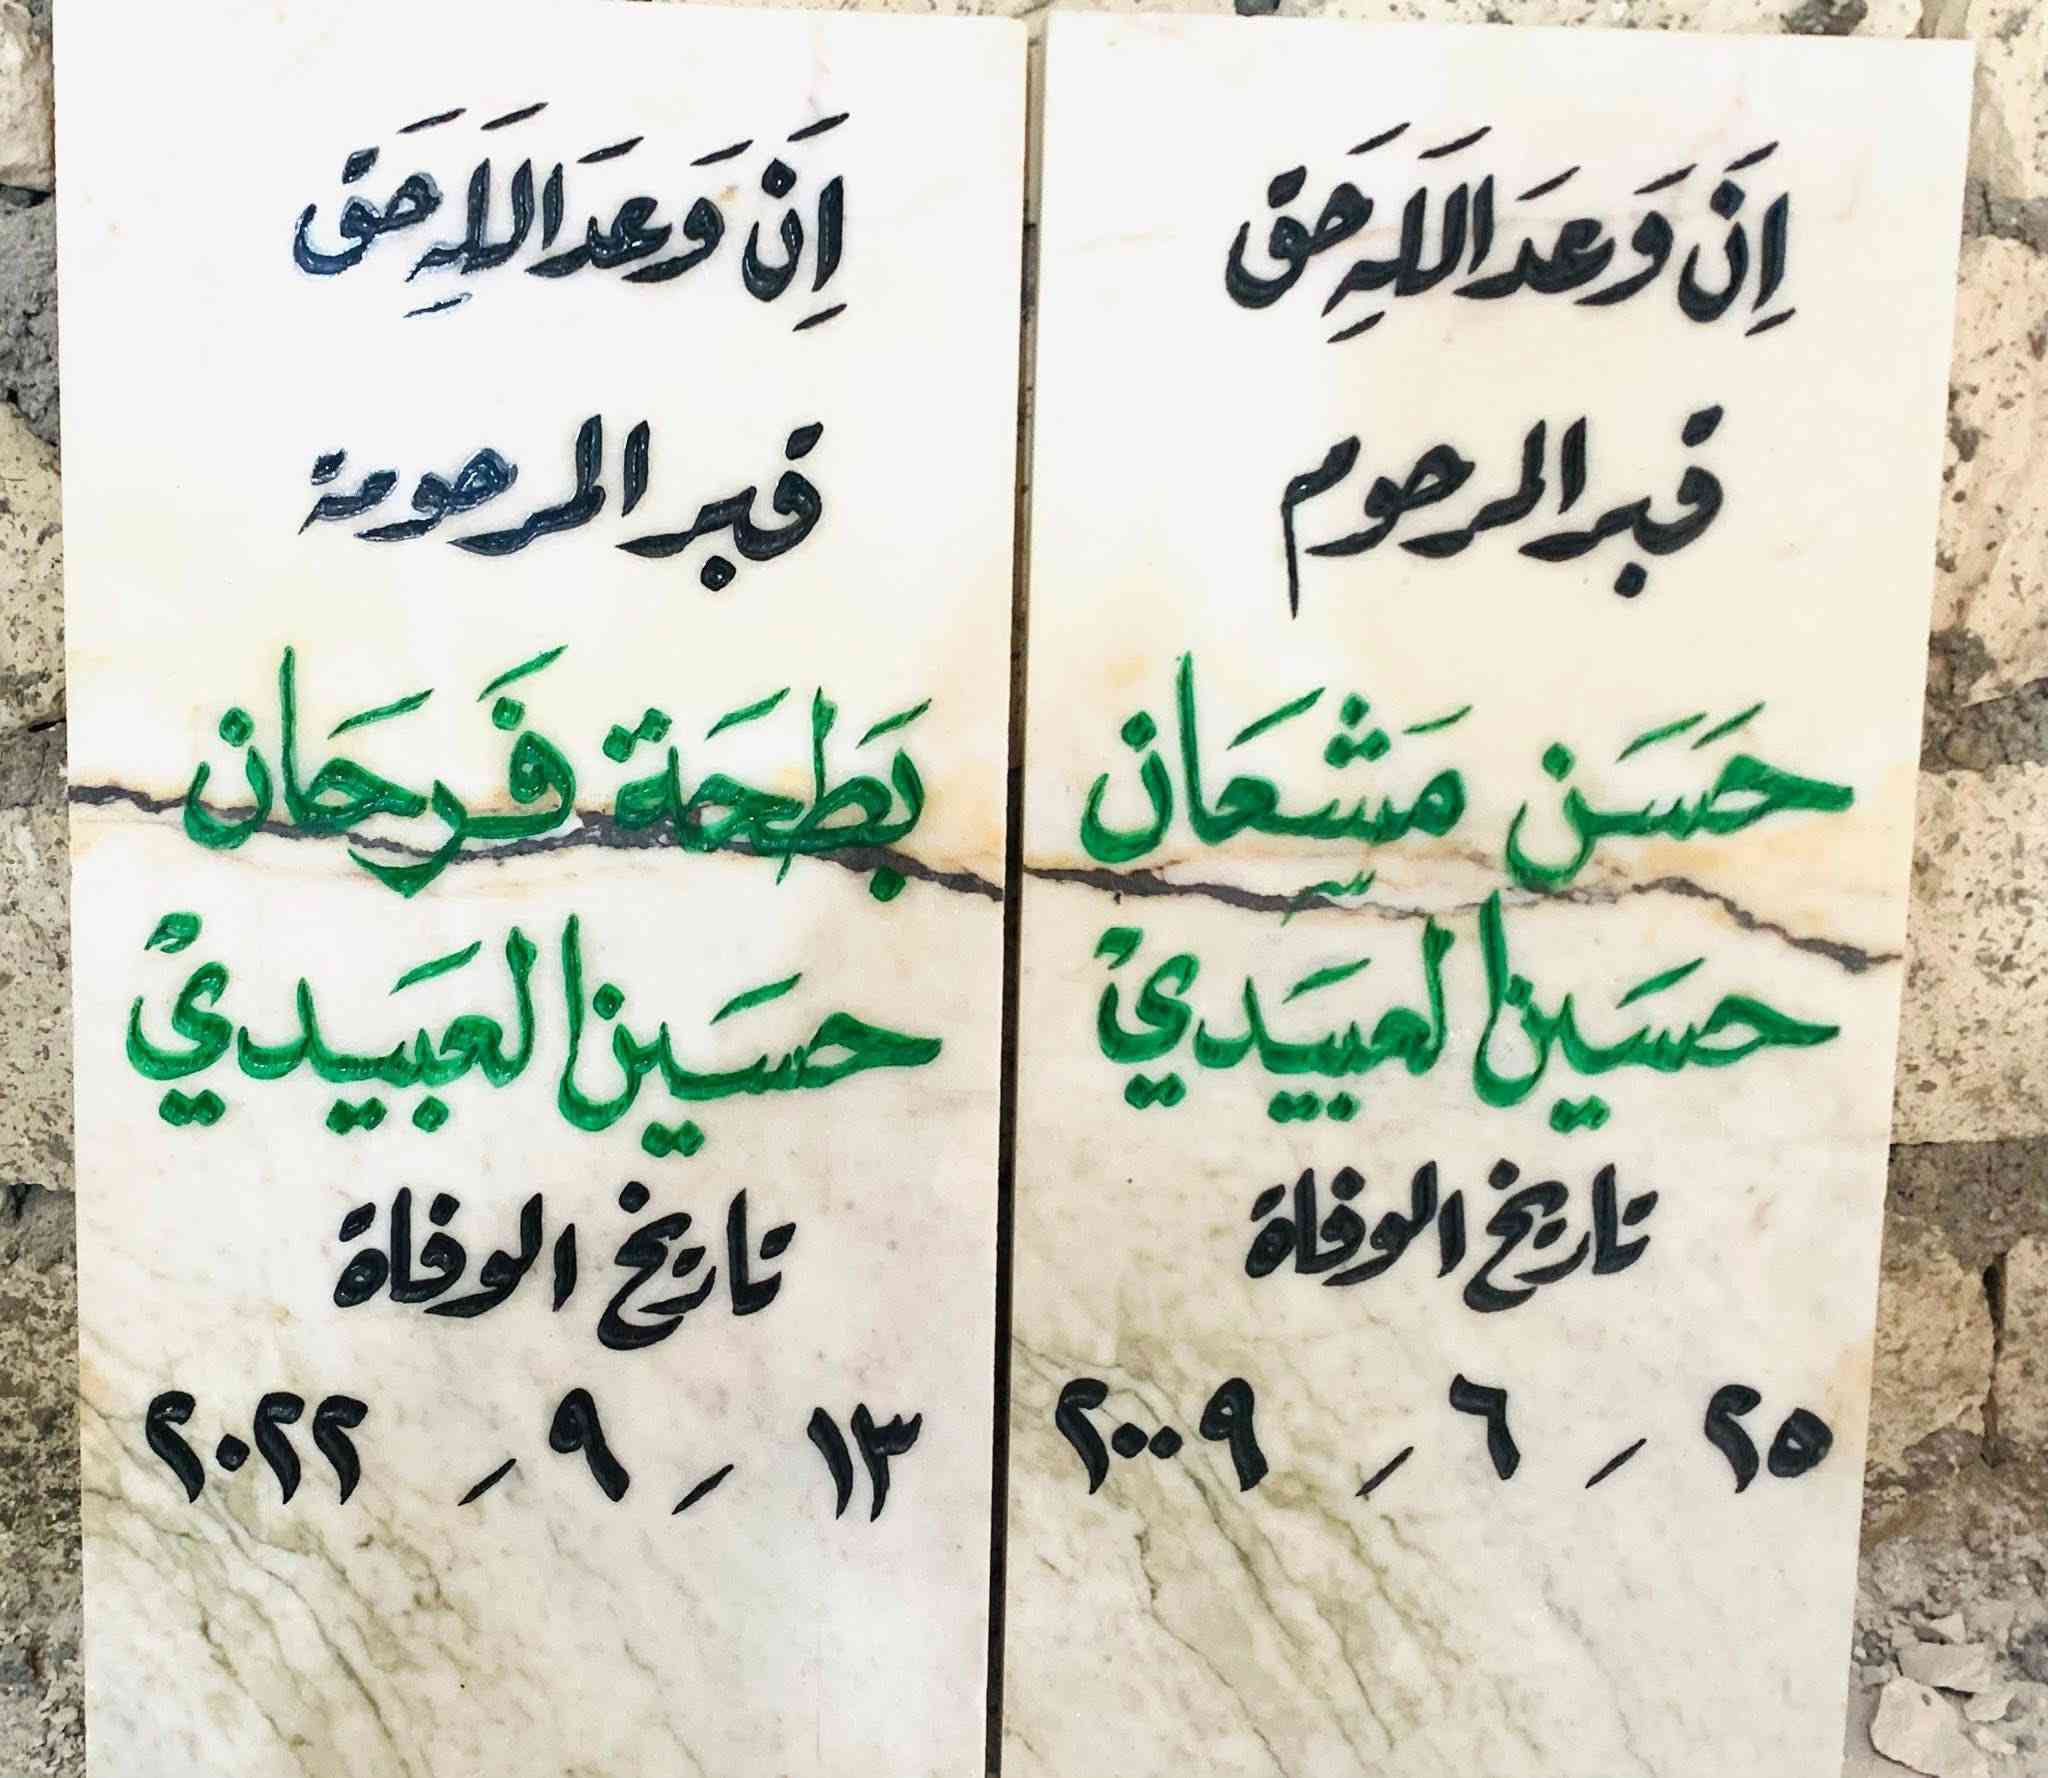 اِنَ وَعدَ اللَهِ حَق
قبر المرحوم
حَسَن مَشعَان
حسَين العبَيدي
تاريخ الوفاة
٢٥ / ٦ / ٢٠٠٩
اِنَ وَعَد اللَهِ حَق
قبر المرحومة
بَطحَة فَرحَان
حسَين العبَيدي
تاريخ الوفاة
١٣ / ٩ / ٢٠٢٢